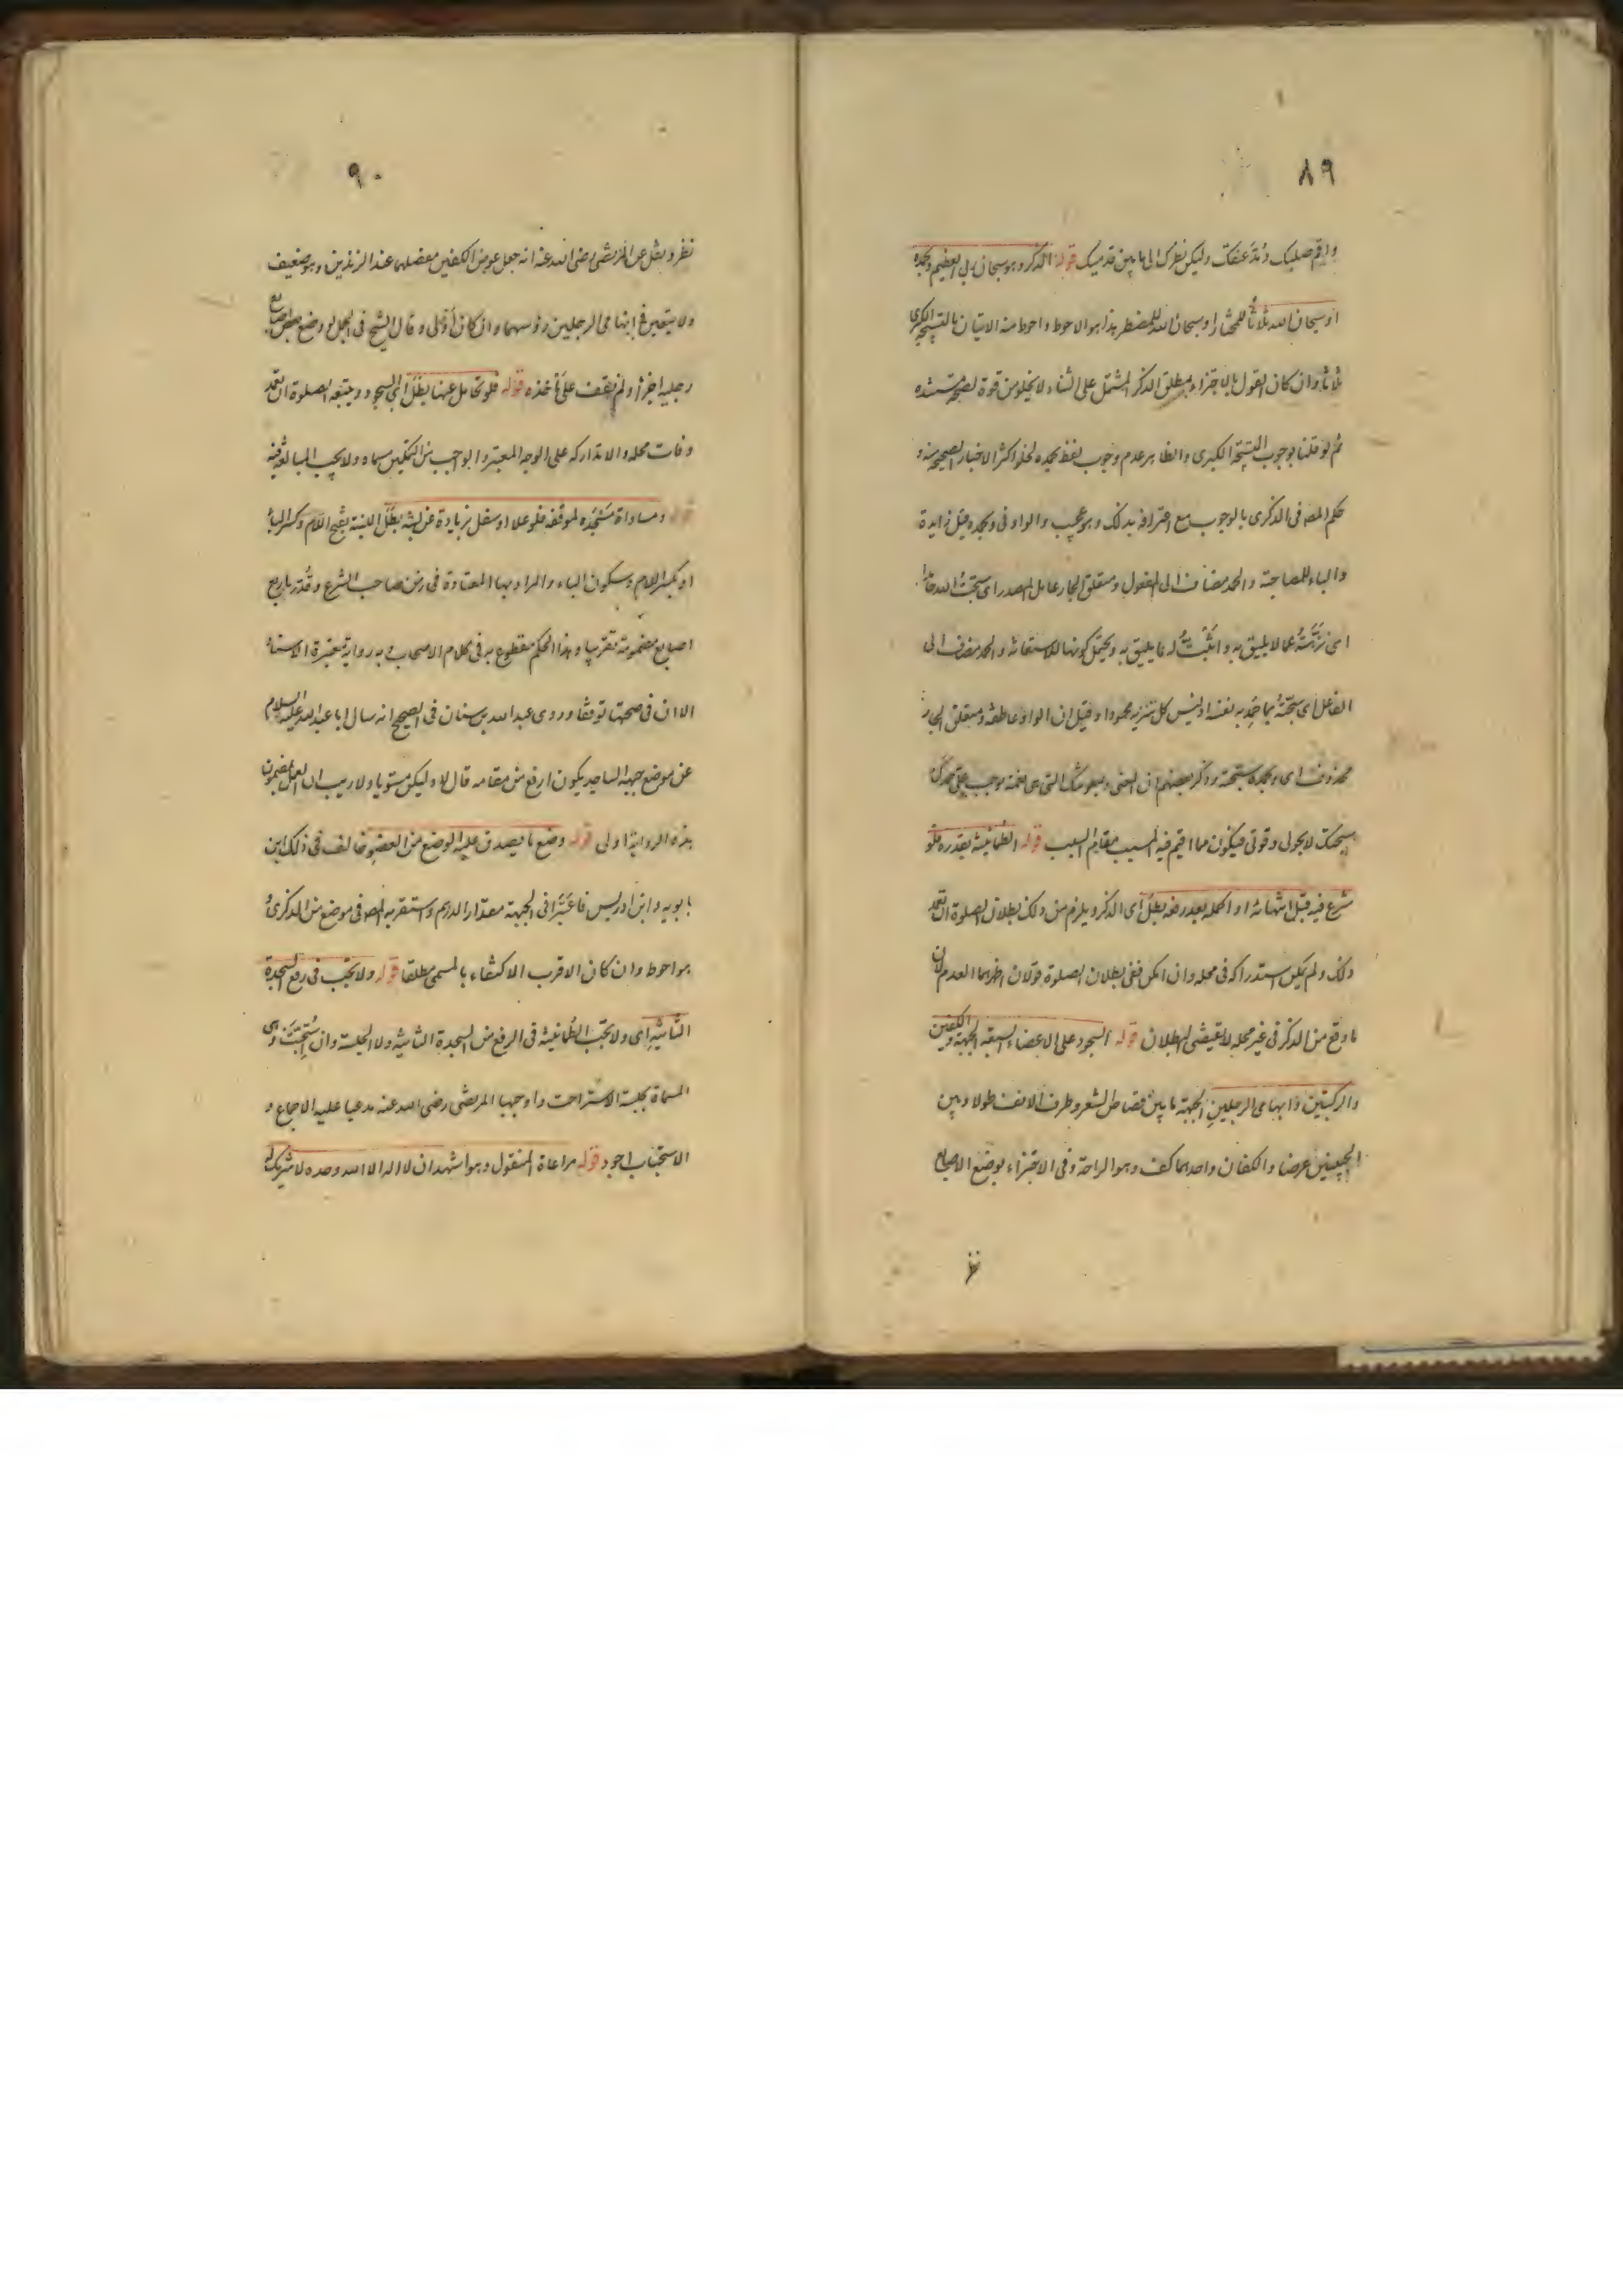 ٨٩
واقم صلبك ومد عنقك وليكن نظرك الى ما بين قدميك قوله الذكر وهو سبحان ربي العظيم وبحمده
او سبحان الله ثلاثا للمختار او سبحان الله للمضطر هذا هو الاحوط واحوط منه الاتيان بالتسبيحة الكبرى
ثلاثا وان كان القول بالاجتزاء بمطلق الذكر المشتمل على الثناء لا يخلو من قوة لصحة مستنده
ثم لو قلنا بوجوب التسبيحة الكبرى والظاهر عدم وجوب لفظ بحمده لخلو اكثر الاخبار الصحيحة منه و
حكم المصه في الذكرى بالوجوب مع اعترافه بذلك وهو عجيب والواو في وبحمده قيل زايدة
والباء للمصاحبة والحمد مضاف الى المفعول ومتعلق الجار عامل المصدر اى سبحت الله حامدا
اى نزهته عما لا يليق به واثبت له ما يليق به ويحتمل كونها للاستعانة والحمد مضاف الى
الفاعل اى سبحته بما حمد به نفسه اذ ليس كل تنزيه محمودا وقيل ان الواو عاطفة ومتعلق الجار
محذوف اى وبحمده سبحته وذكر بعضهم ان المعنى وبمعونتك التى هى نعمة توجب على حمدك
سبحتك لا بحولى وقوتى فيكون مما اقيم فيه المسبب مقام السبب قوله الطمأنينة بقدره فلو
شرع فيه قبل انتهائه او اكمله بعد رفعه بطل اى الذكر ويلزم من ذلك بطلان الصلوة ان تعمد
ذلك ولم يمكن استدراكه في محله وان امكن ففى بطلان الصلوة قولان اظهرهما العدم لان
ما وقع من الذكر في غير محله لا يقتضى البطلان قوله السجود على الاعضاء السبعة الجبهة والكفين
والركبتين وابهامى الرجلين الجبهة ما بين قصاص الشعر وطرف الانف طولا وبين
الجبينين عرضا والكفان واحدهما كف وهو الراحة وفى الاجتزاء بوضع الاصابع
نظر
٩٠
نظر ونقل عن المرتضى رضى الله عنه انه جعل عوض الكفين مفصلهما عند الزندين وهو ضعيف
ولا يتعين في ابهامى الرجلين رؤسهما وان كان أولى وقال الشيخ في الجمل لو وضع بعض اصابع
رجليه اجزأ ولم نقف على مأخذه قوله فلو تحامل عنها بطل اى السجود ويتبعه الصلوة ان تعمد
وفات محله والا تداركه على الوجه المعتبر والواجب من التمكين مسماه ولا يجب المبالغة فيه
قوله ومساواة مسجده لموقفه فلو علا او سفل بزيادة عن لبنة بطل اللبنة بفتح اللام وكسر الباء
او بكسر اللام وسكون الباء والمراد بها المعتادة في زمن صاحب الشرع وقدر باربع
اصابع مضمومة تقريبا وهذا الحكم مقطوع به في كلام الاصحاب وبه رواية معتبرة الاسناد
الا ان في صحتها توقفا وروى عبد الله بن سنان في الصحيح انه سال ابا عبد الله عليه السلام
عن موضع جبهة الساجد يكون ارفع من مقامه قال لا وليكن مستويا ولا ريب ان العمل بمضمون
هذه الرواية اولى قوله وضع ما يصدق عليه الوضع من العضو خالف في ذلك ابن
بابويه وابن ادريس فاعتبرا في الجبهة مقدار الدرهم واستقربه المصه في موضع من الذكرى و
هو احوط وان كان الاقرب الاكتفاء بالمسمى مطلقا قوله ولا تجب في رفع السجدة
الثانية اى ولا تجب الطمأنينة في الرفع من السجدة الثانية ولا الجلسة وان استحبت وهى
المسماة بجلسة الاستراحة واوجبها المرتضى رضى الله عنه مدعيا عليه الاجماع و
الاستحباب اجود قوله مراعاة المنقول وهو اشهد ان لا اله الا الله وحده لا شريك له